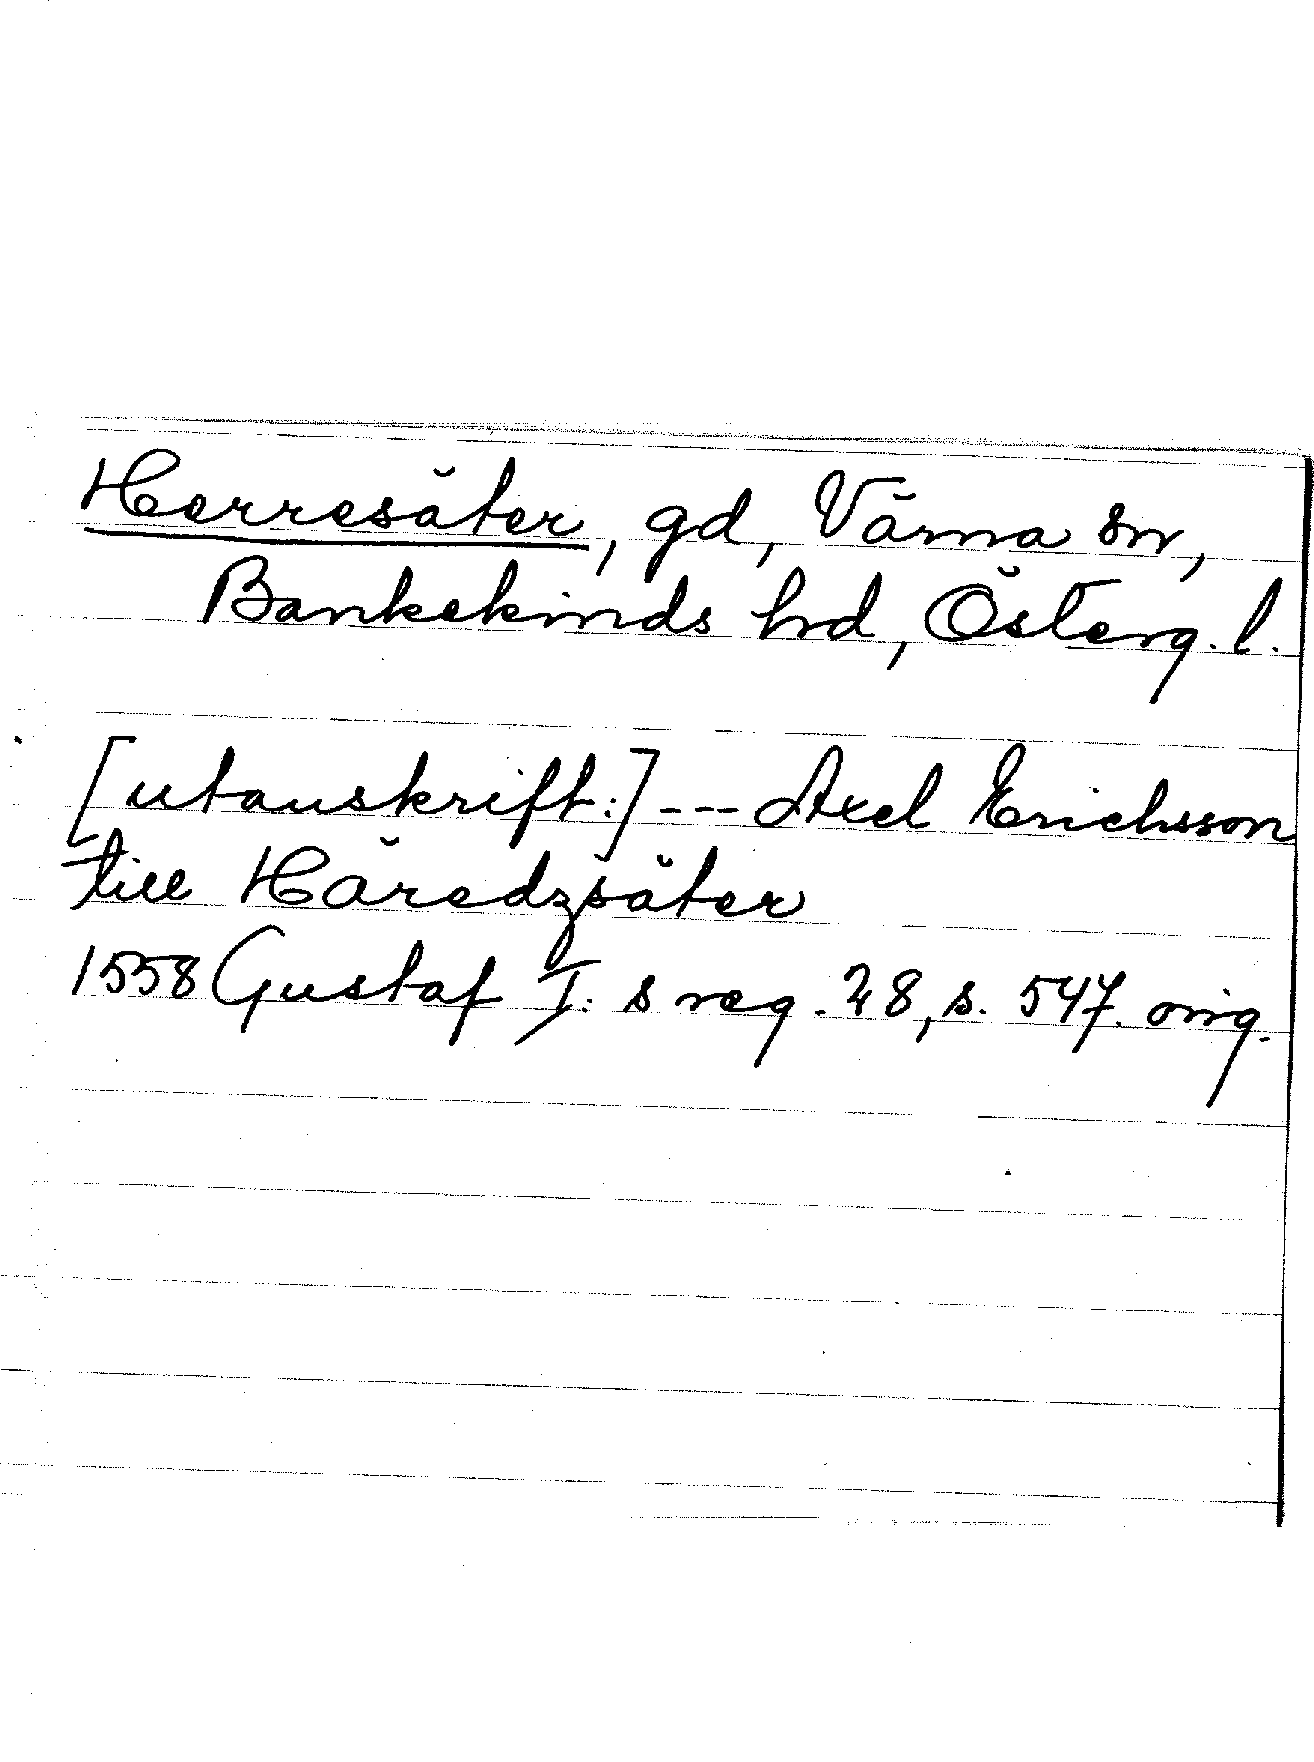 Herresäter, gd, Värna sn,
Bankekinds hrd, Österg. l.
[utanskrift:] --- Axel Erichsson
till Häredzsäter
1558 Gustaf I:s reg. 28, s. 547. orig.